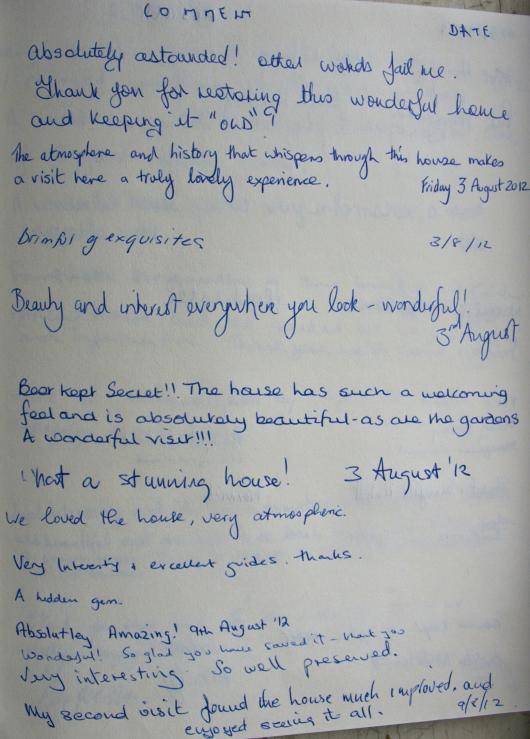 COMMENT
DATE
Absolutely astounded! other words fail me.
Thank you for restoring this wonderful home
and keeping it "OLD"!
The atmosphere and history that whispers through this house makes
a visit here a truly lovely experience. Friday 3 August 2012
Brimful of exquisites 3/8/12
Beauty and interest everywhere you look - wonderful!
3rd August
Best kept Secret!! The house has such a welcoming
feel and is absolutely beautiful - as are the gardens
A wonderful visit!!!
What a stunning house! 3 August '12
We loved the house, very atmospheric.
Very Interesting & excellent guides. thanks.
A hidden gem.
Absolutley Amazing! 9th August '12
Wonderful! So glad you have saved it - thank you
Very interesting. So well preserved.
My second visit found the house much improved, and
enjoyed seeing it all. 9/8/12